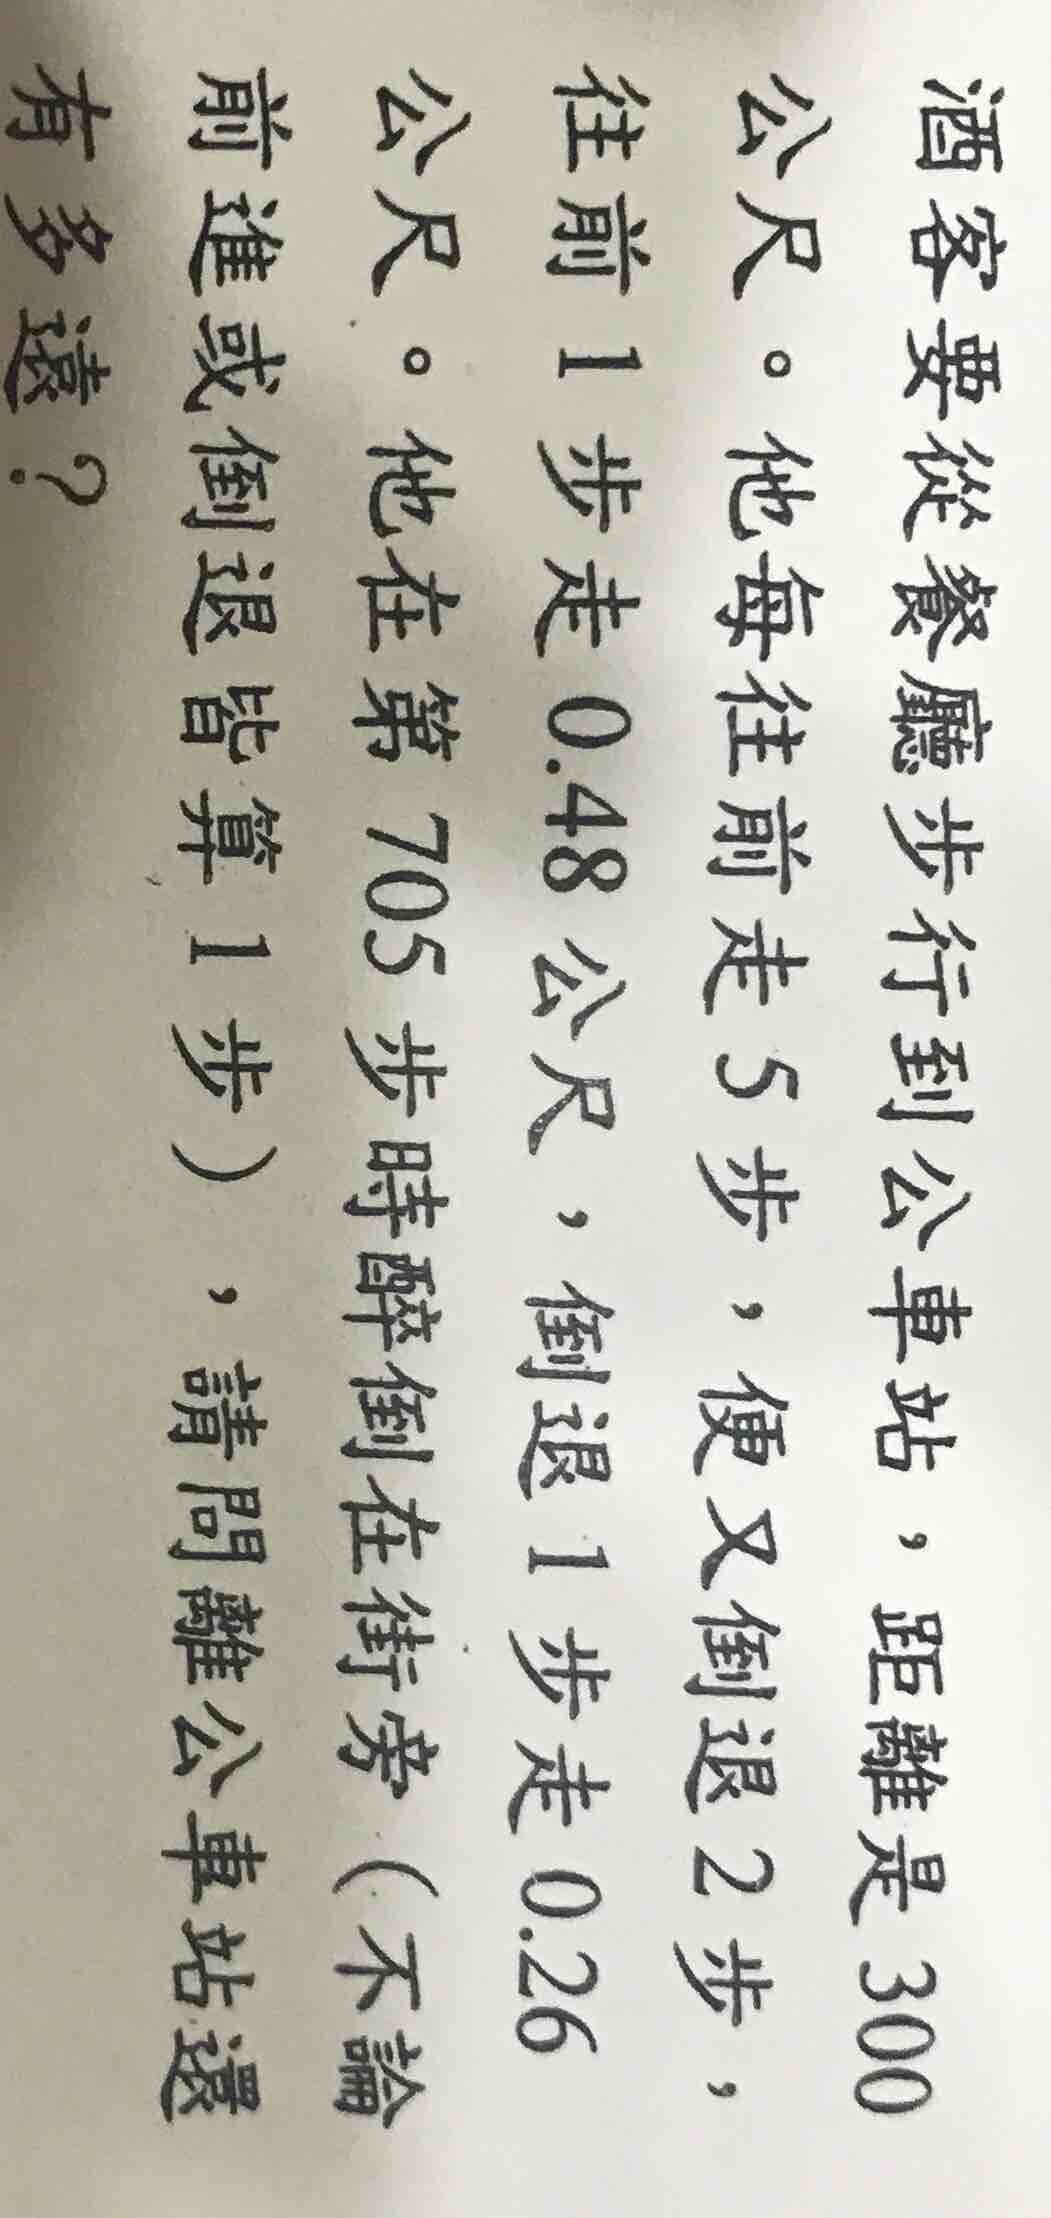 酒客要從餐廳步行到公車站，距離是300
公尺。他每往前走5步，便又倒退2步，
往前1步走0.48公尺，倒退1步走0.26
公尺。他在第705步時醉倒在街旁（不論
前進或倒退皆算1步），請問離公車站還
有多遠？